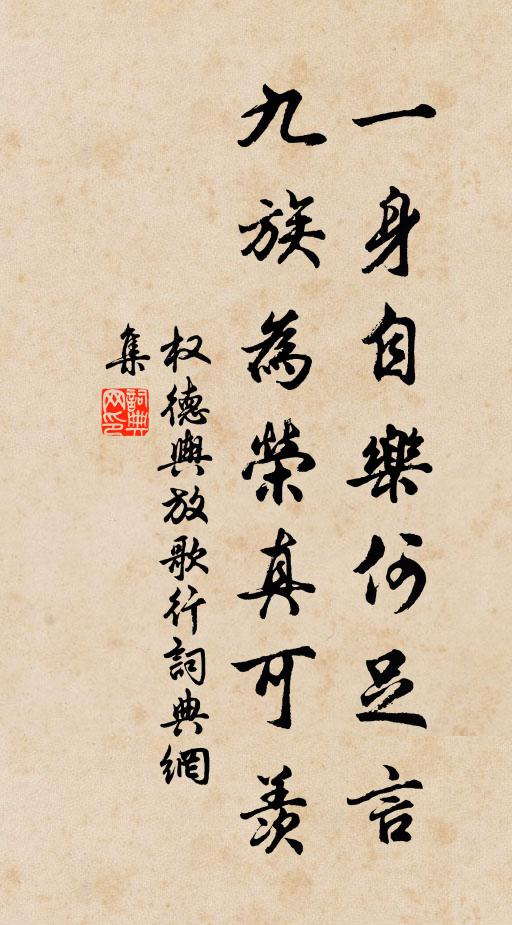 一身自樂何足言
九族為榮真可羨
权德輿放歌行詞典網
集
詞典网印